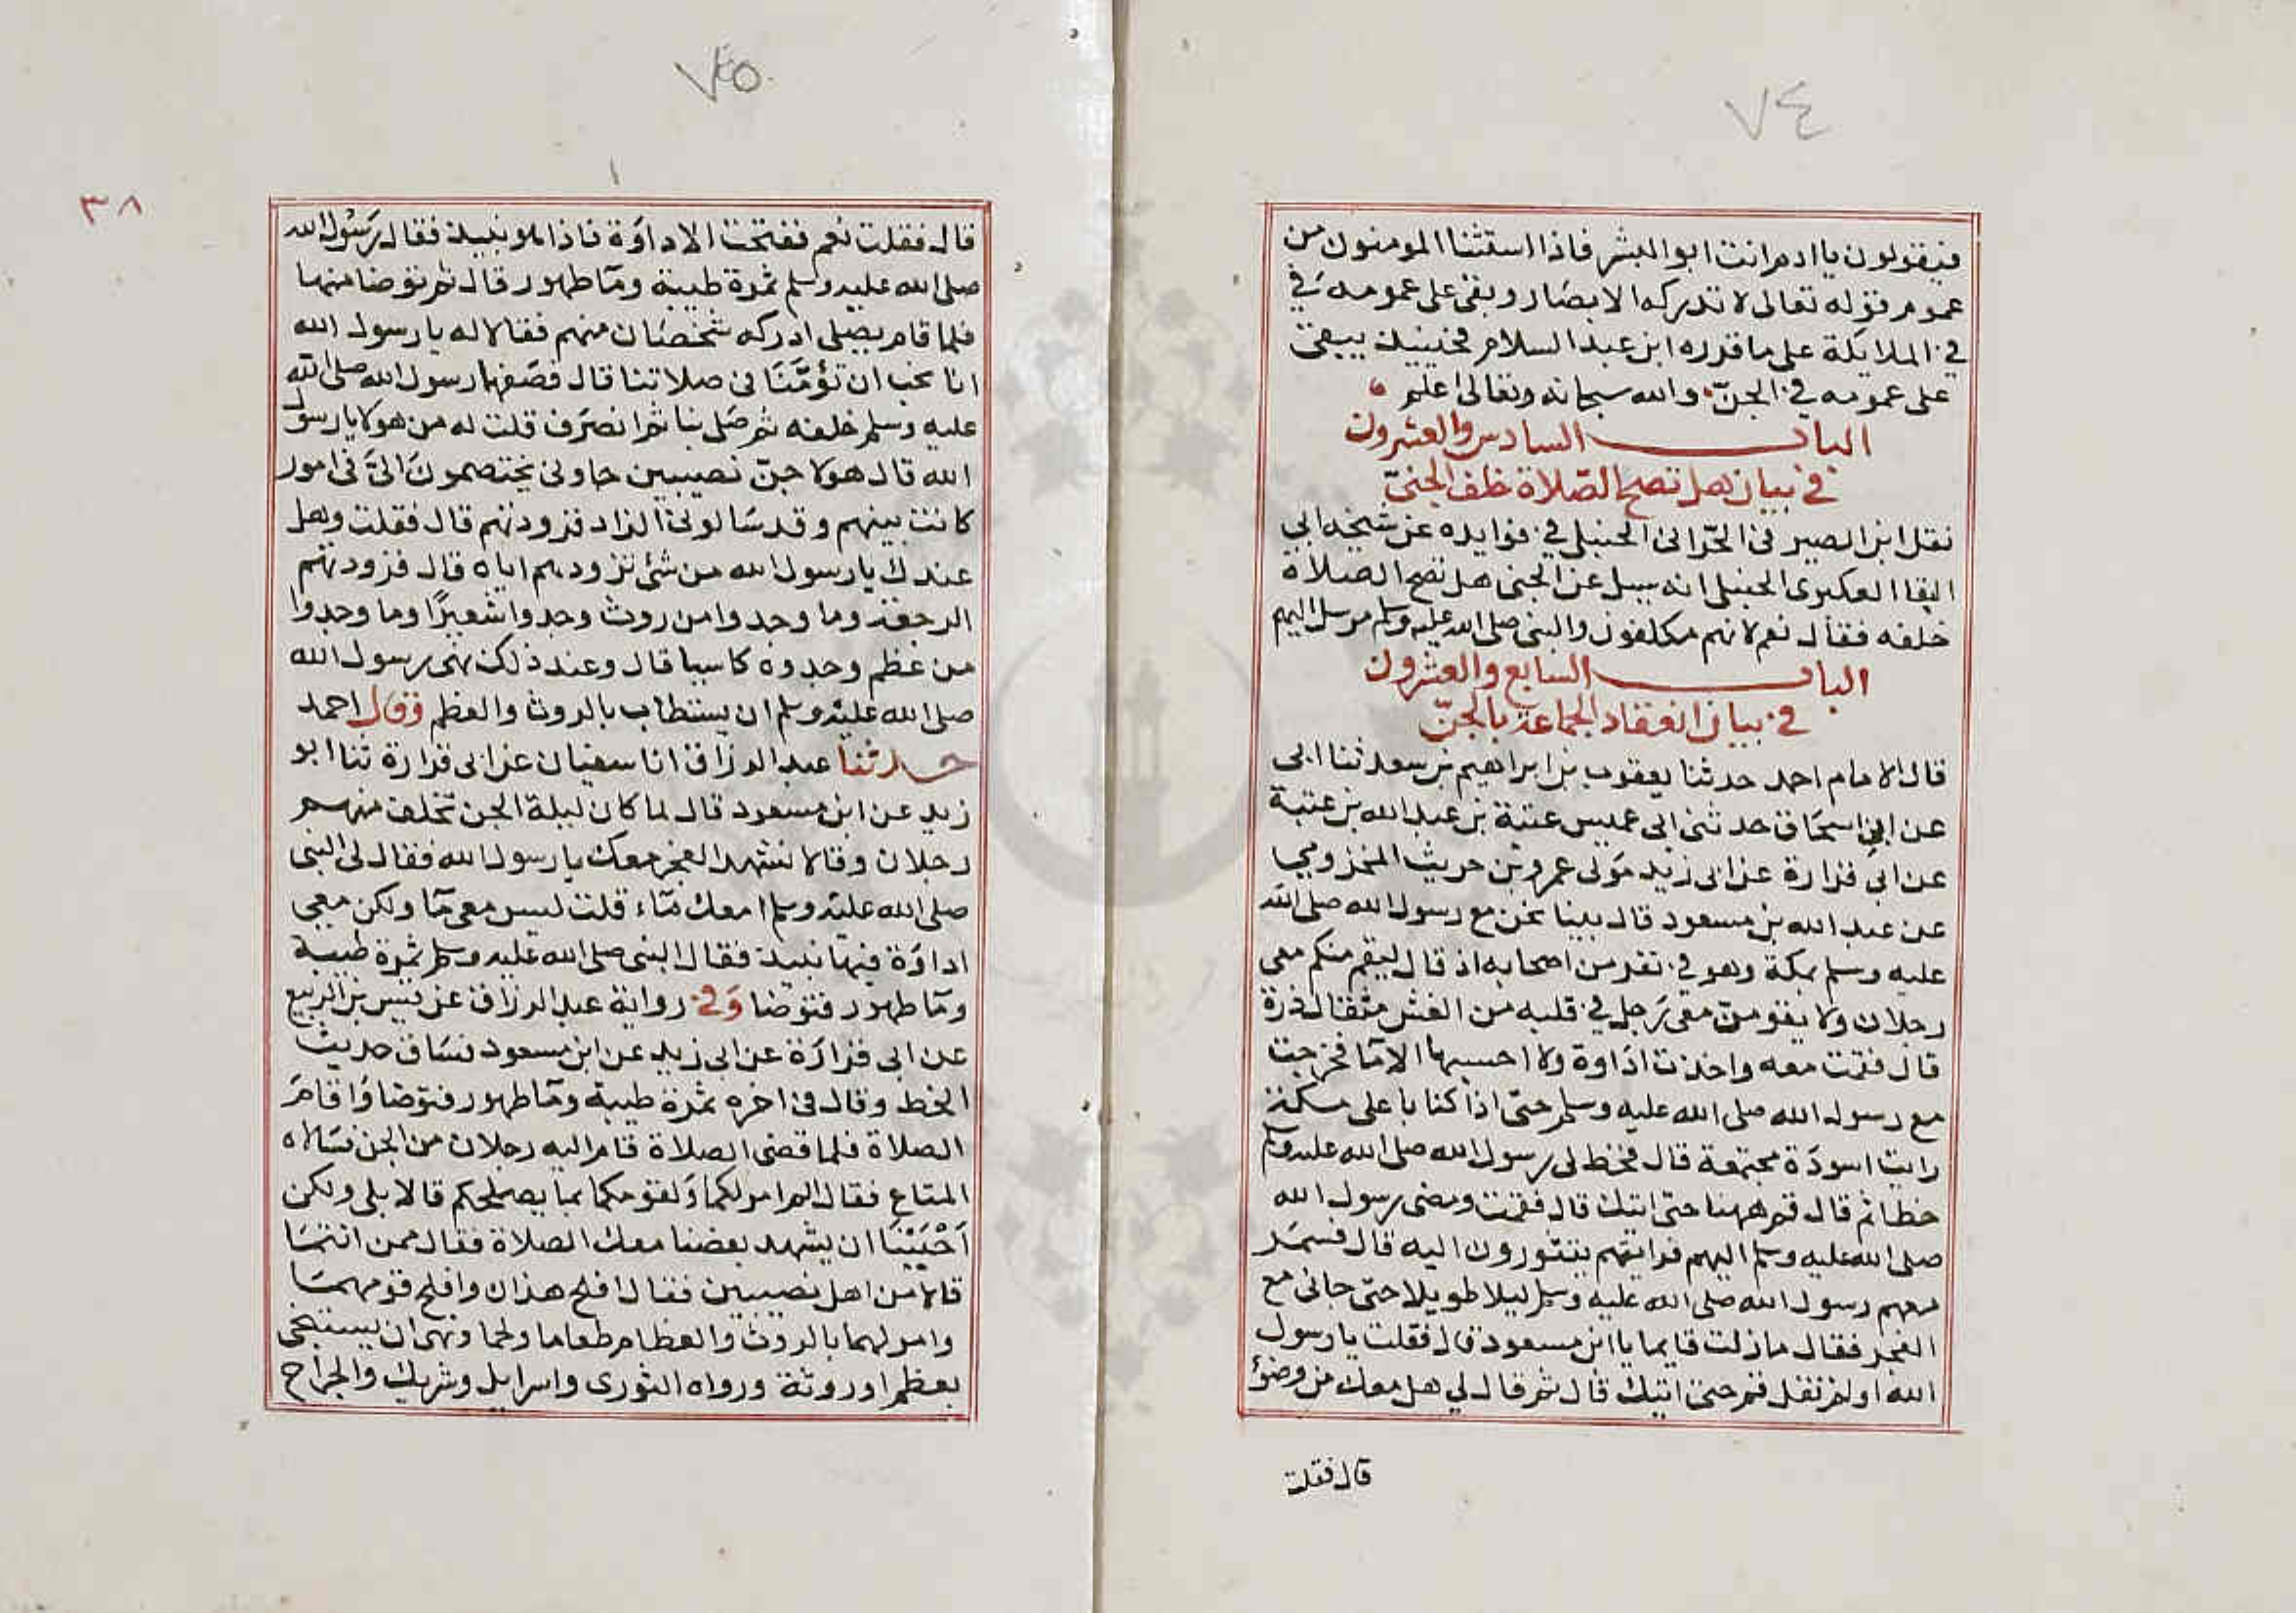 ٧٤
فيقولون يا ادم انت ابو البشر فاذا استثنا المومنون من
عموم قوله تعالى لا تدركه الابصار وبقى على عمومه في
في الملايكة على ما قرره ابن عبد السلام فحينيذ يبقى
على عمومه في الجن والله سبحانه وتعالى اعلم
الباب السادس والعشرون
في بيان هل تصح الصلاة خلف الجني
نقل ابن الصيرفى الحرانى الحنبلي في فوايده عن شيخه ابي
البقا العكبرى الحنبلي انه سيل عن الجنى هل تصح الصلاة
خلفه فقال نعم لانهم مكلفون والنبى صلى الله عليه وسلم مرسل اليهم
الباب السابع والعشرون
في بيان انعقاد الجماعة بالجن
قال الامام احمد حدثنا يعقوب بن ابراهيم بن سعد ثنا ابى
عن ابى اسحاق حدثنى ابى عميس عتبة بن عبد الله بن عتبة
عن ابى فزارة عن ابى زيد مولى عمرو بن حريث المخزومي
عن عبد الله بن مسعود قال بينا نحن مع رسول الله صلى الله
عليه وسلم بمكة وهو في نفر من اصحابه اذ قال ليقم منكم معى
رجلان ولا يقومن معى رجل في قلبه من الغش مثقال ذرة
قال فقمت معه واخذت اداوة ولا احسبها الا ما فخرجت
مع رسول الله صلى الله عليه وسلم حتى اذا كنا باعلى مكة
رايت اسودة مجتمعة قال فخط لى رسول الله صلى الله عليه وسلم
خطا ثم قال قم ههنا حتى اتيك قال فقمت ومضى رسول الله
صلى الله عليه وسلم اليهم فرايتهم يتثورون اليه قال فسمر
معهم رسول الله صلى الله عليه وسلم ليلا طويلا حتى جانى مع
الفجر فقال ما زلت قايما يا ابن مسعود قال فقلت يا رسول
الله اولم تقل قم حتى اتيك قال ثم قال لي هل معك من وضؤ
قال فقلت
٧٥
١
٣٨
قال فقلت نعم ففتحت الاداوة فاذا هو نبيذ فقال رسول الله
صلى الله عليه وسلم ثمرة طيبة وما طهور قال ثم توضا منها
فلما قام يصلى ادركه شخصان منهم فقالا له يا رسول الله
انا نحب ان تؤمنا فى صلاتنا قال فصفهما رسول الله صلى الله
عليه وسلم خلفه ثم صلى بنا ثم انصرف قلت له من هولا يا رسول
الله قال هولا جن نصيبين جاونى يختصمون الى فى امور
كانت بينهم وقد سالونى الزاد فزودتهم قال فقلت وهل
عندك يا رسول الله من شئ تزودهم اياه قال فزودتهم
الرجعة وما وجدوا من روث وجدوا شعيرا وما وجدوا
من عظم وجدوه كاسيا قال وعند ذلك نهى رسول الله
صلى الله عليه وسلم ان يستطاب بالروث والعظم وقال احمد
حدثنا عبد الرزاق انا سفيان عن ابى فزارة ثنا ابو
زيد عن ابن مسعود قال لما كان ليلة الجن تخلف منهم
رجلان وقالا نشهد الفجر معك يا رسول الله فقال لى النبى
صلى الله عليه وسلم امعك ماء قلت ليس معى ما ولكن معي
اداوة فيها نبيذ فقال النبى صلى الله عليه وسلم ثمرة طيبة
وما طهور فتوضا وفي رواية عبد الرزاق عن قيس بن الربيع
عن ابى فزارة عن ابى زيد عن ابن مسعود فساق حديث
الخط وقال فى اخره ثمرة طيبة وما طهور فتوضا واقام
الصلاة فلما قضى الصلاة قام اليه رجلان من الجن فسالاه
المتاع فقال الم امر لكما ولقومكما بما يصلحكم قالا بلى ولكن
احببنا ان يشهد بعضنا معك الصلاة فقال ممن انتما
قالا من اهل نصيبين فقال افلح هذان وافلح قومهما
وامر لهما بالروث والعظام طعاما ولحما ونهى ان يستنجى
بعظم او روثة ورواه الثورى واسرايل وشريك والجراح